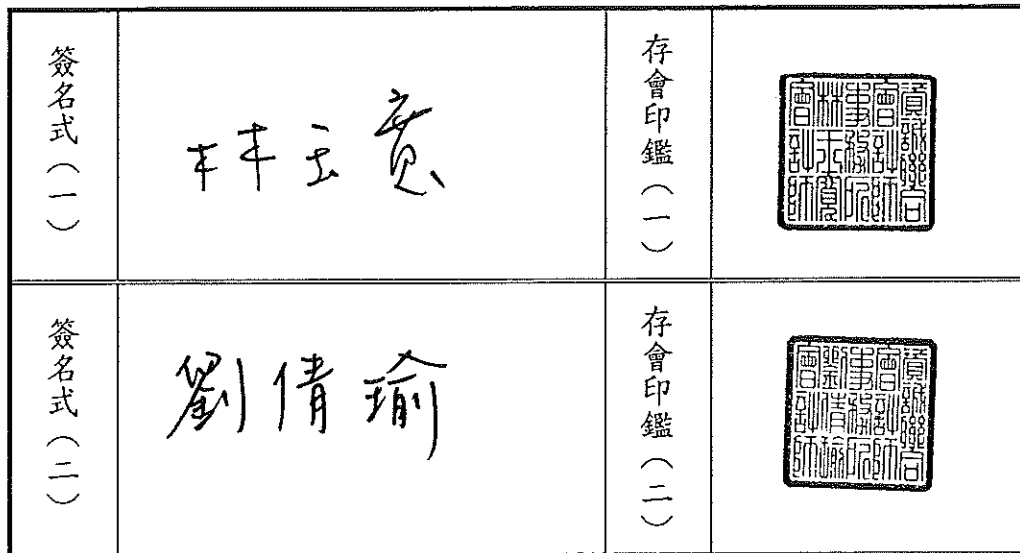 簽名式（一）
林玉寬
存會印鑑（一）
資誠聯合
會計師
事務所
林玉寬
會計師
簽名式（二）
劉倩瑜
存會印鑑（二）
資誠聯合
會計師
事務所
劉倩瑜
會計師